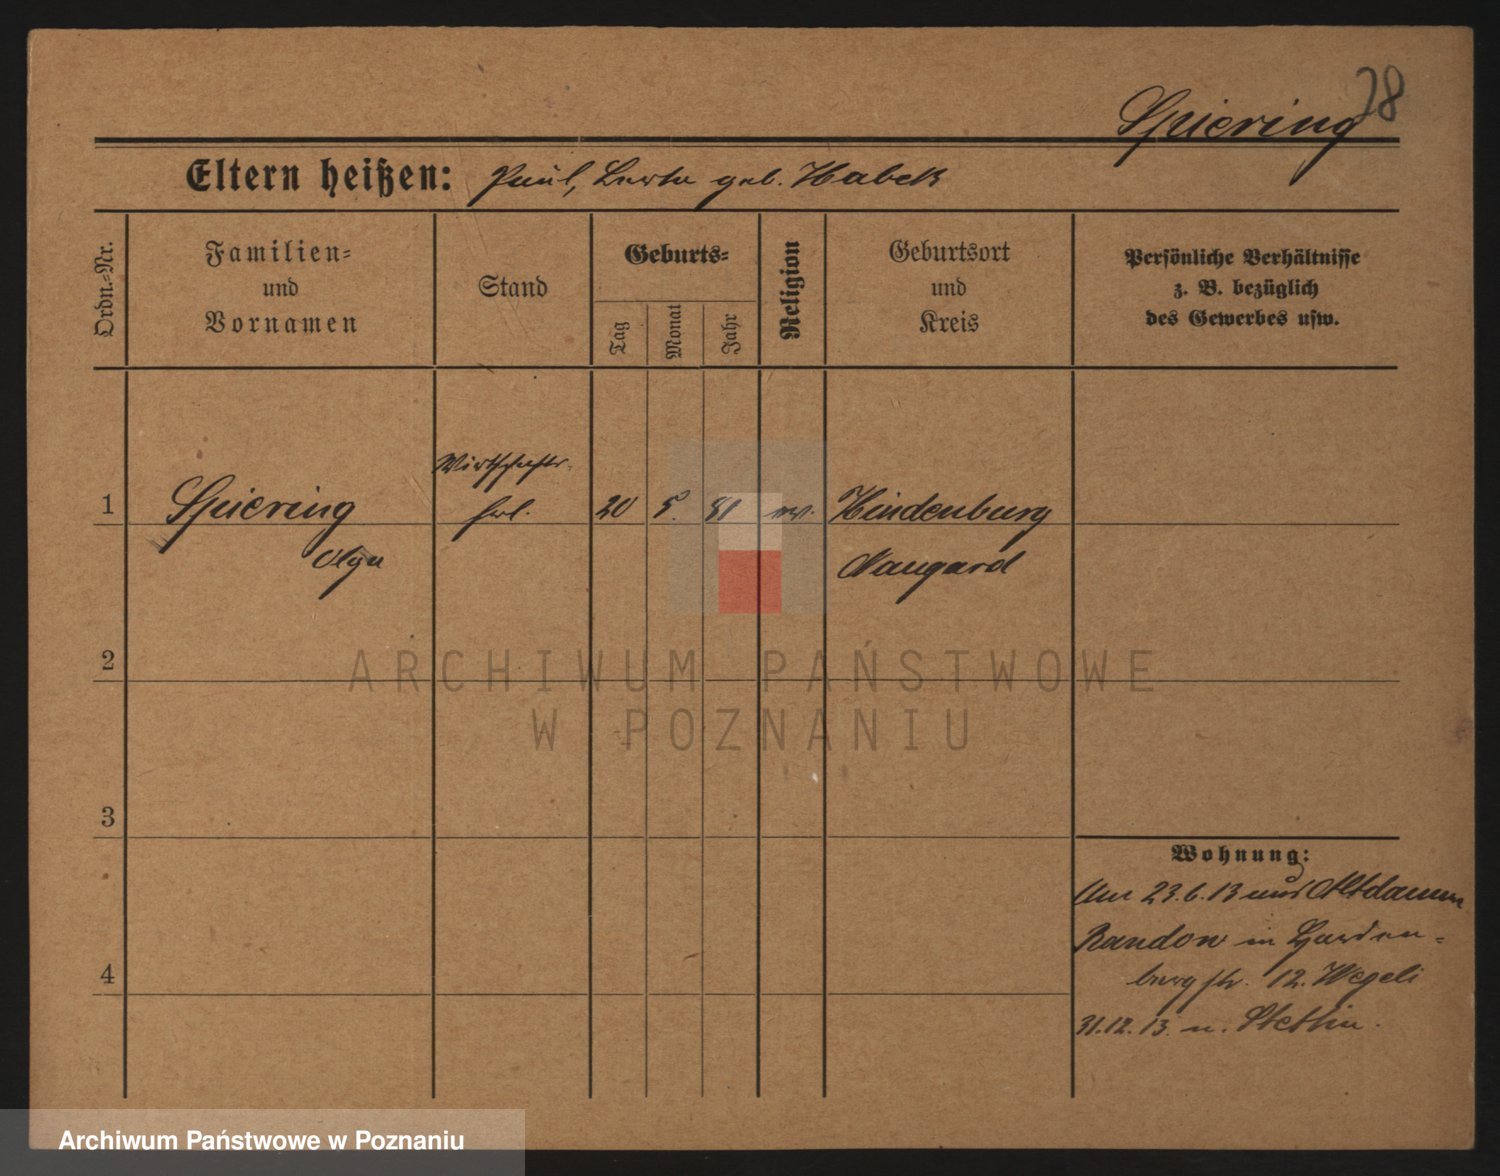 28
Spiering
Eltern heißen: Paul, Berta geb. Habeck
Ordn.-Nr.
Familien-
und
Vornamen
Stand
Geburts-
Tag
Monat
Jahr
Religion
Geburtsort
und
Kreis
Persönliche Verhältnisse
z. B. bezüglich
des Gewerbes usw.
Wirtschafts-
1 Spiering frl. 20 5. 81 ev. Hindenburg
Olga Naugard
2
3
4
Wohnung:
Am 23.6.13 aus Altdamm
Randow in Harden-
bergstr. 12. Wegeli
31.12.13. n. Stettin.
ARCHIWUM PAŃSTWOWE
W POZNANIU
Archiwum Państwowe w Poznaniu